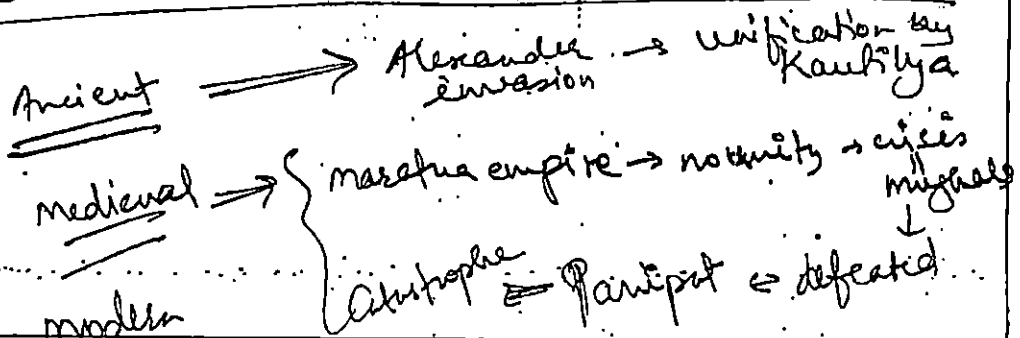 Ancient ⇒ Alexander invasion → unification by Kautilya
Medieval ⇒ { maratha empire → no unity → crisis
mughals
↓
Catastrophe ⇐ Panipat ⇐ defeated
modern